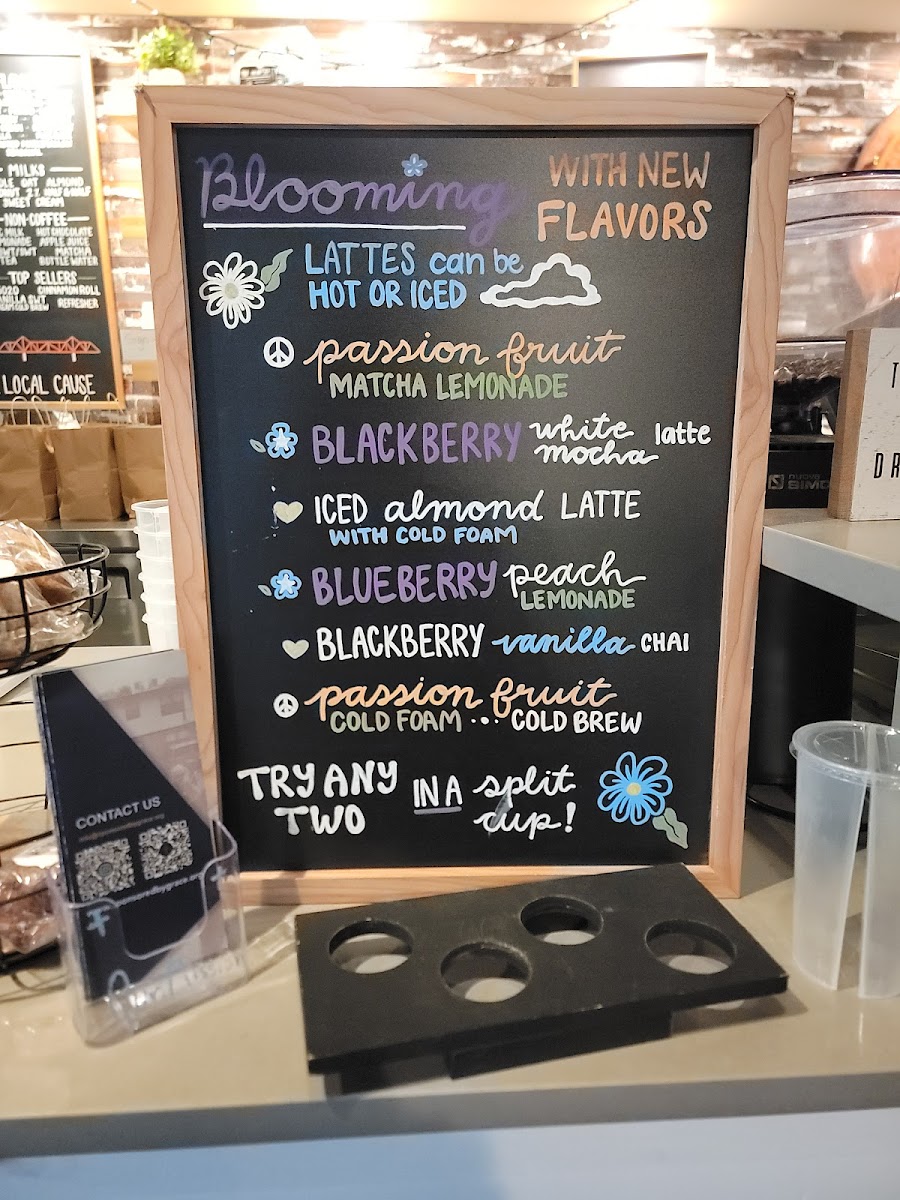 Blooming WITH NEW
FLAVORS
LATTES can be
HOT OR ICED
passion fruit
MATCHA LEMONADE
BLACKBERRY white mocha latte
ICED almond LATTE
WITH COLD FOAM
BLUEBERRY peach
LEMONADE
BLACKBERRY vanilla CHAI
passion fruit
COLD FOAM ... COLD BREW
TRY ANY
TWO
IN A split
cup!
MILKS
OAT ALMOND
SWEET CREAM
NON-COFFEE
MILK HOT CHOCOLATE
APPLE JUICE
MATCHA
BOTTLE WATER
TOP SELLERS
CINNAMON ROLL
REFRESHER
LOCAL CAUSE
CONTACT US
nuova
SIMO
T
DR